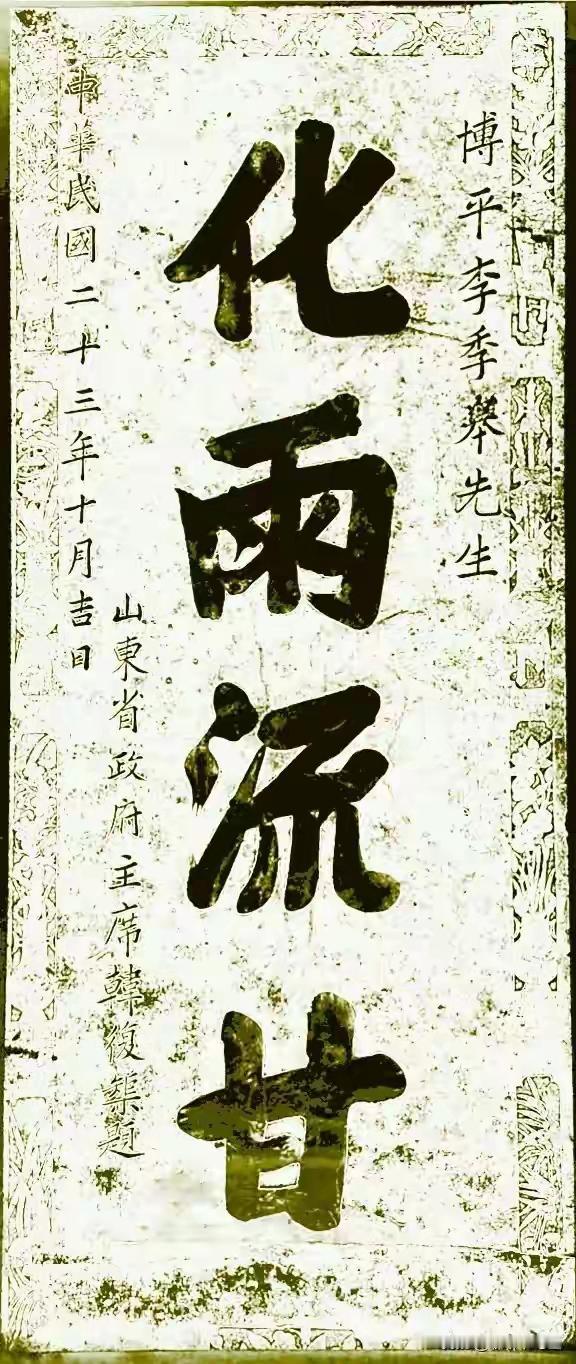 博平李季舉先生
化雨流甘
山東省政府主席韓復榘題
中華民國二十三年十月吉日